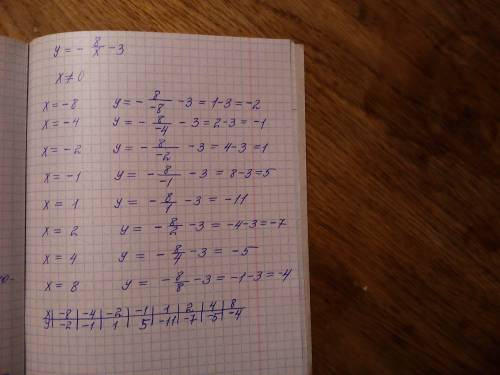 y = - 8/x - 3
x ≠ 0
x = -8 y = - 8/-8 - 3 = 1-3 = -2
x = -4 y = - 8/-4 - 3 = 2-3 = -1
x = -2 y = - 8/-2 - 3 = 4-3 = 1
x = -1 y = - 8/-1 - 3 = 8-3 = 5
x = 1 y = - 8/1 - 3 = -11
x = 2 y = - 8/2 - 3 = -4-3 = -7
x = 4 y = - 8/4 - 3 = -5
x = 8 y = - 8/8 - 3 = -1-3 = -4
x | -8 | -4 | -2 | -1 | 1 | 2 | 4 | 8
y | -2 | -1 | 1 | 5 | -11 | -7 | -5 | -4